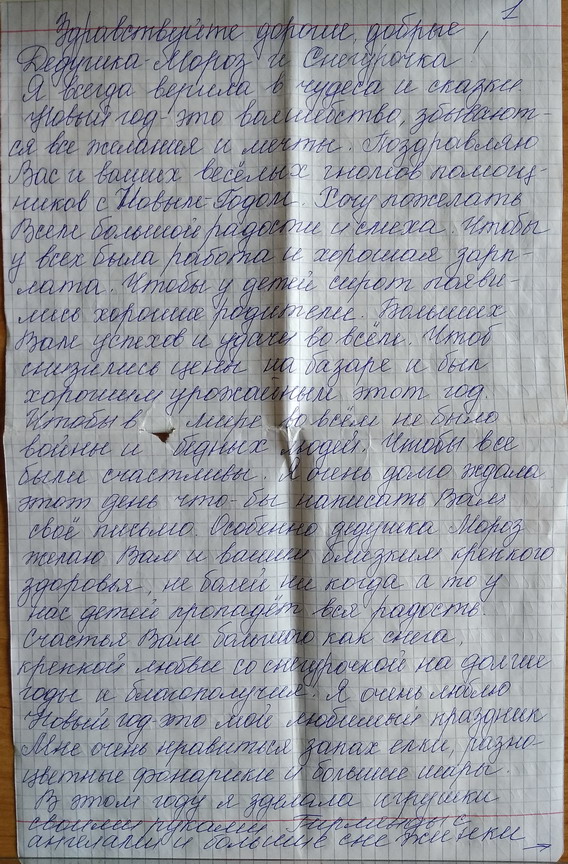 1
Здравствуйте дорогие, добрые
Дедушка-Мороз и Снегурочка!
Я всегда верила в чудеса и сказки.
Новый год-это волшебство, сбывают-
ся все желания и мечты. Поздравляю
Вас и ваших весёлых гномов помощ-
ников с Новым-Годом. Хочу пожелать
Всем большой радости и смеха. Чтобы
у всех была работа и хорошая зарп-
лата. Чтобы у детей сирот появи-
лись хорошие родители. Больших
Вам успехов и удачи во всём. Чтоб
снизились цены на базаре и был
хорошим урожайным этот год.
Чтобы в мире во всём не было
войны и бедных людей. Чтобы все
были счастливы. Я очень долго ждала
этот день что-бы написать Вам
своё письмо. Особенно дедушка Мороз
желаю Вам и вашим близким крепкого
здоровья, не болей ни когда а то у
нас детей пропадёт вся радость.
Счастья Вам большого как снега,
крепкой любви со снегурочкой на долгие
годы и благополучия. Я очень люблю
Новый год-это мой любимый праздник
Мне очень нравиться запах елки, разно-
цветные фонарики и большие шары.
В этом году я зделала игрушки
своими руками. Гирлянды с
ангелами и большие снежинки →